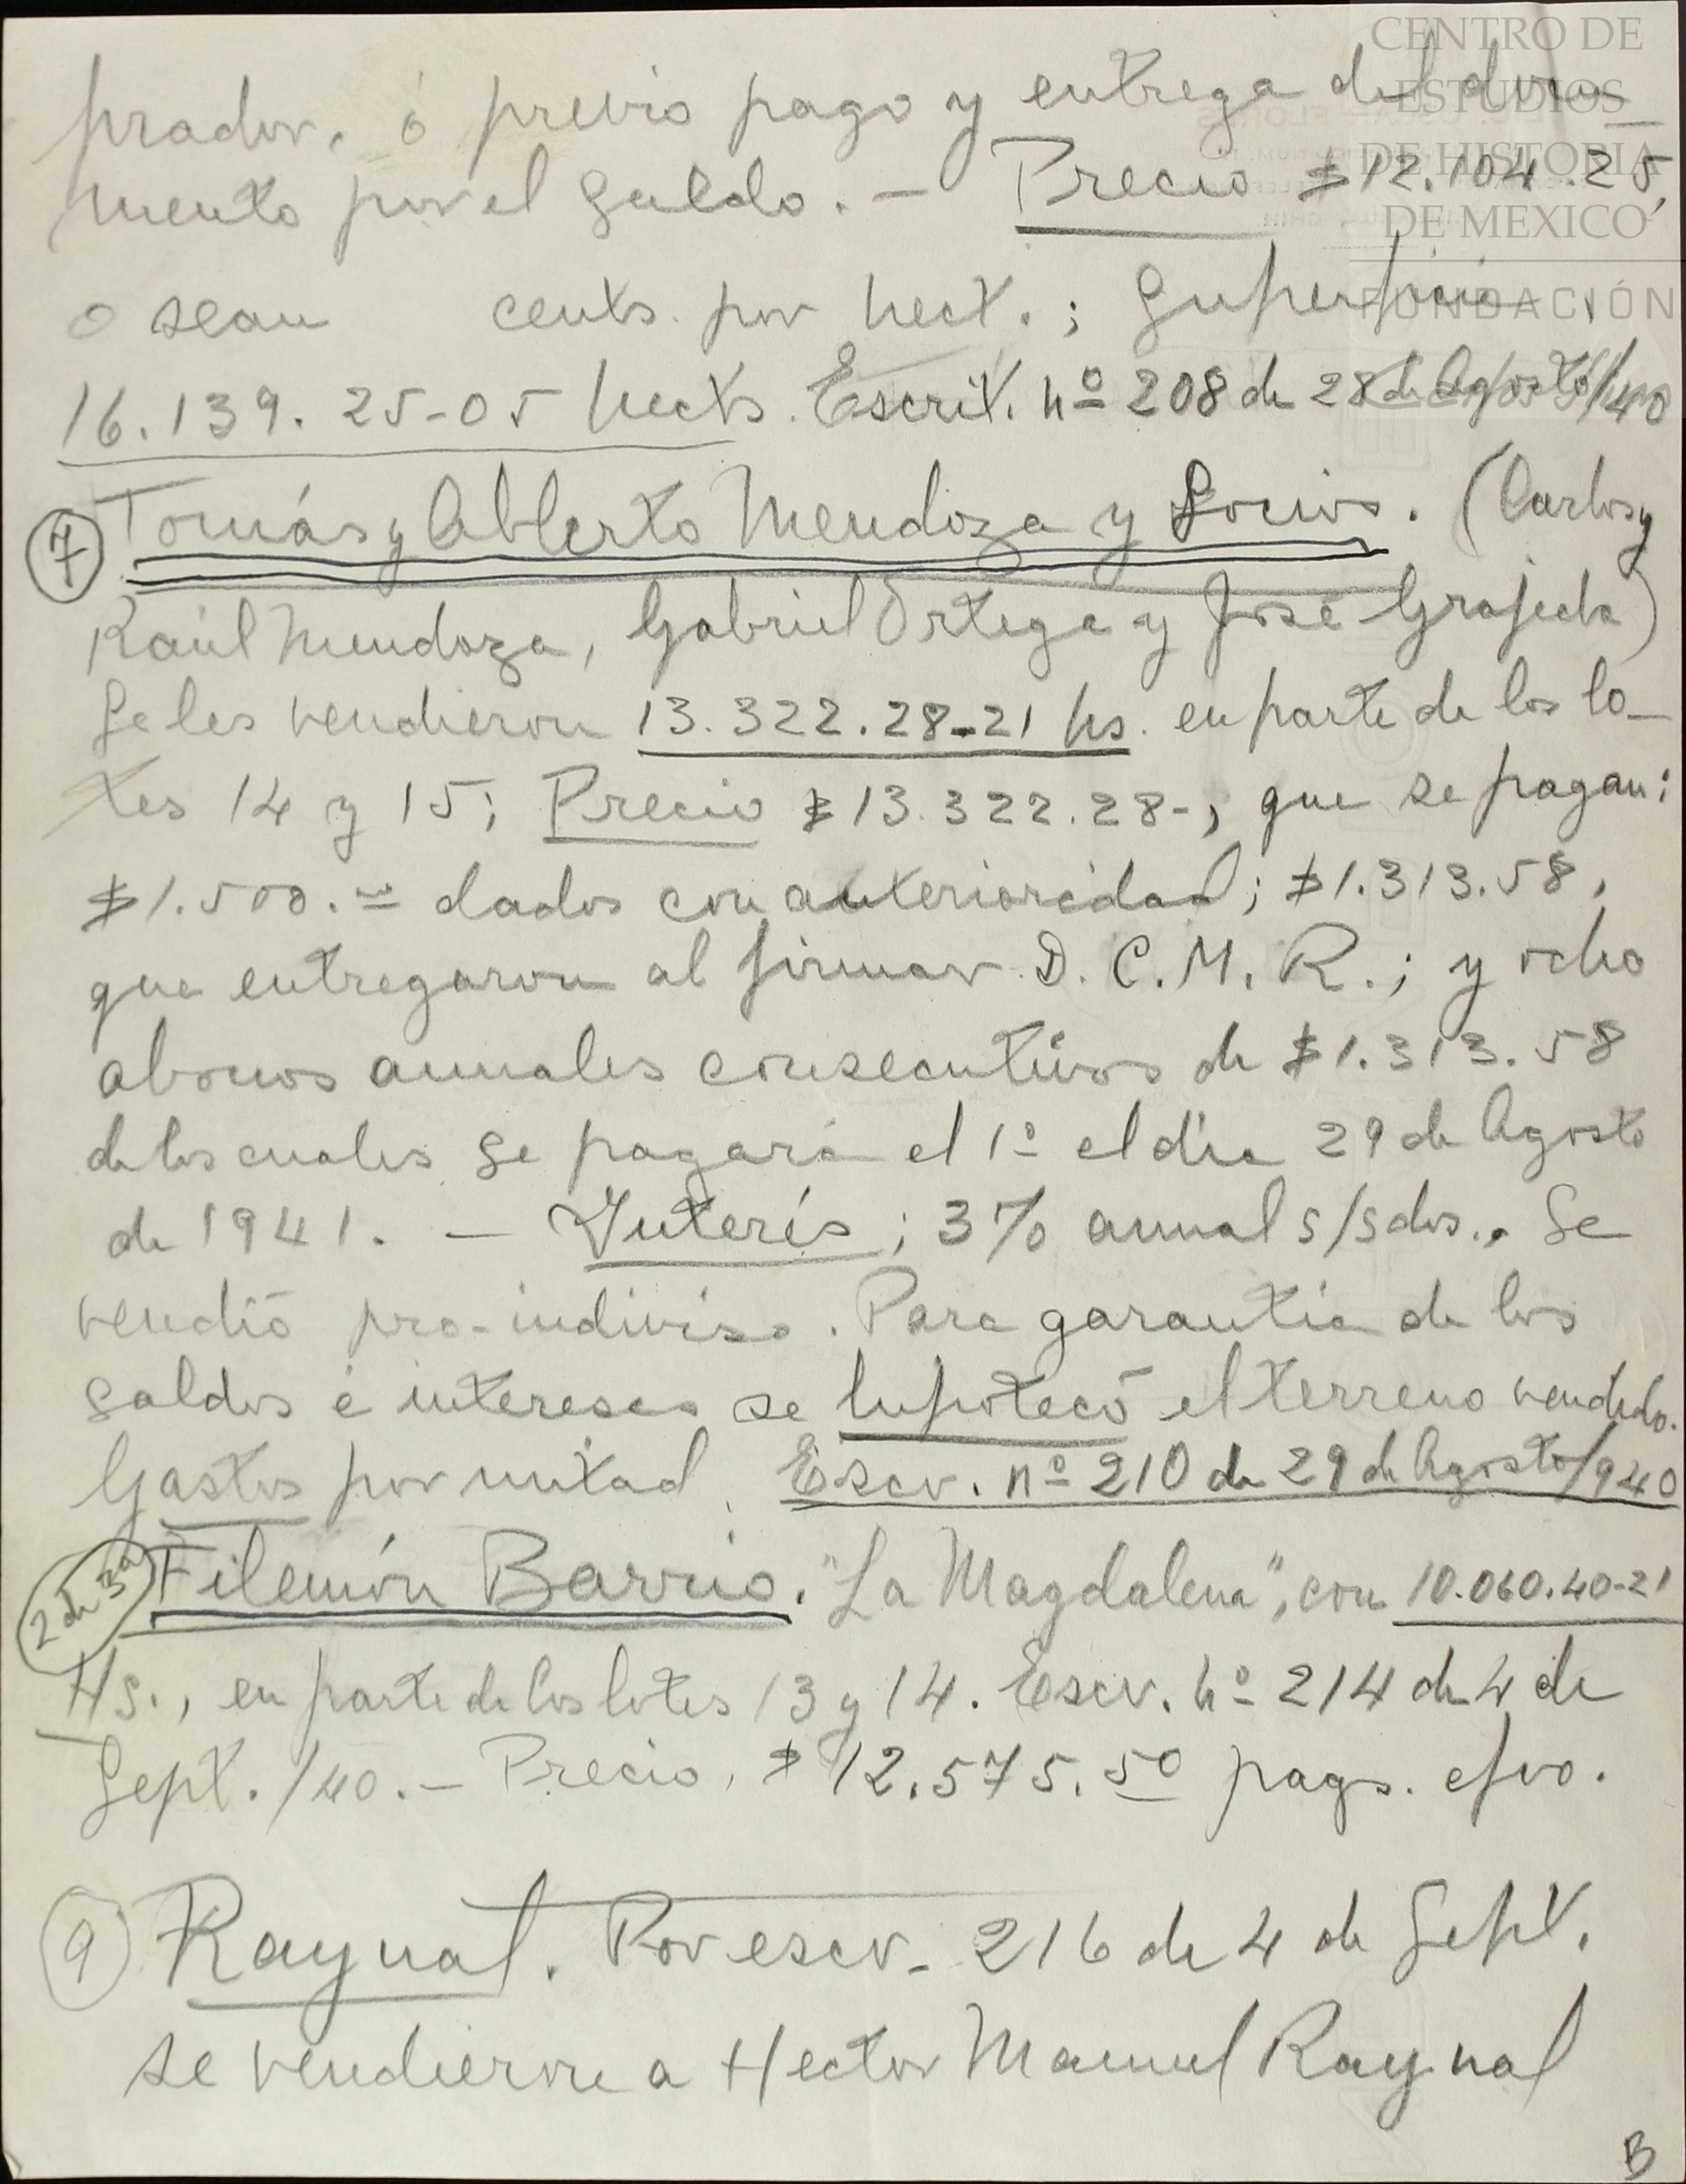 CENTRO DE
ESTUDIOS
DE HISTORIA
DE MEXICO
FUNDACIÓN
prador. ó previo pago y entrega del docu-
mento por el Saldo. — Precio $12.104.25,
o sean cents. por hect.; Superficie,
16.139.25-05 hects. Escrit. nº 208 de 28 de Agosto/40
7 Tomás y Alberto Mendoza y Socios. (Carlos y
Raúl Mendoza, Gabriel Ortega y José Grajeda)
Se les vendieron 13.322.28-21 hs. en parte de los lo-
tes 14 y 15; Precio $13.322.28-, que se pagan:
$1.500.= dados con anterioridad; $1.313.58,
que entregaron al firmar D. C. M. R.; y ocho
abonos anuales consecutivos de $1.313.58
de los cuales se pagará el 1º el día 29 de Agosto
de 1941. — Interés; 3% anual s/sdos.. Se
vendió pro-indiviso. Para garantía de los
saldos é intereses se hipotecó el terreno vendido.
Gastos por mitad. Escr. nº 210 de 29 de Agosto/940
2 de 3ª Filemón Barrio. "La Magdalena", con 10.060.40-21
Hs., en parte de los lotes 13 y 14. Escr. nº 214 de 4 de
Sept./40. — Precio, $12.575.50 pags. efvo.
9 Raynal. Por escr. 216 de 4 de Sept.
se vendieron a Hector Manuel Raynal
B